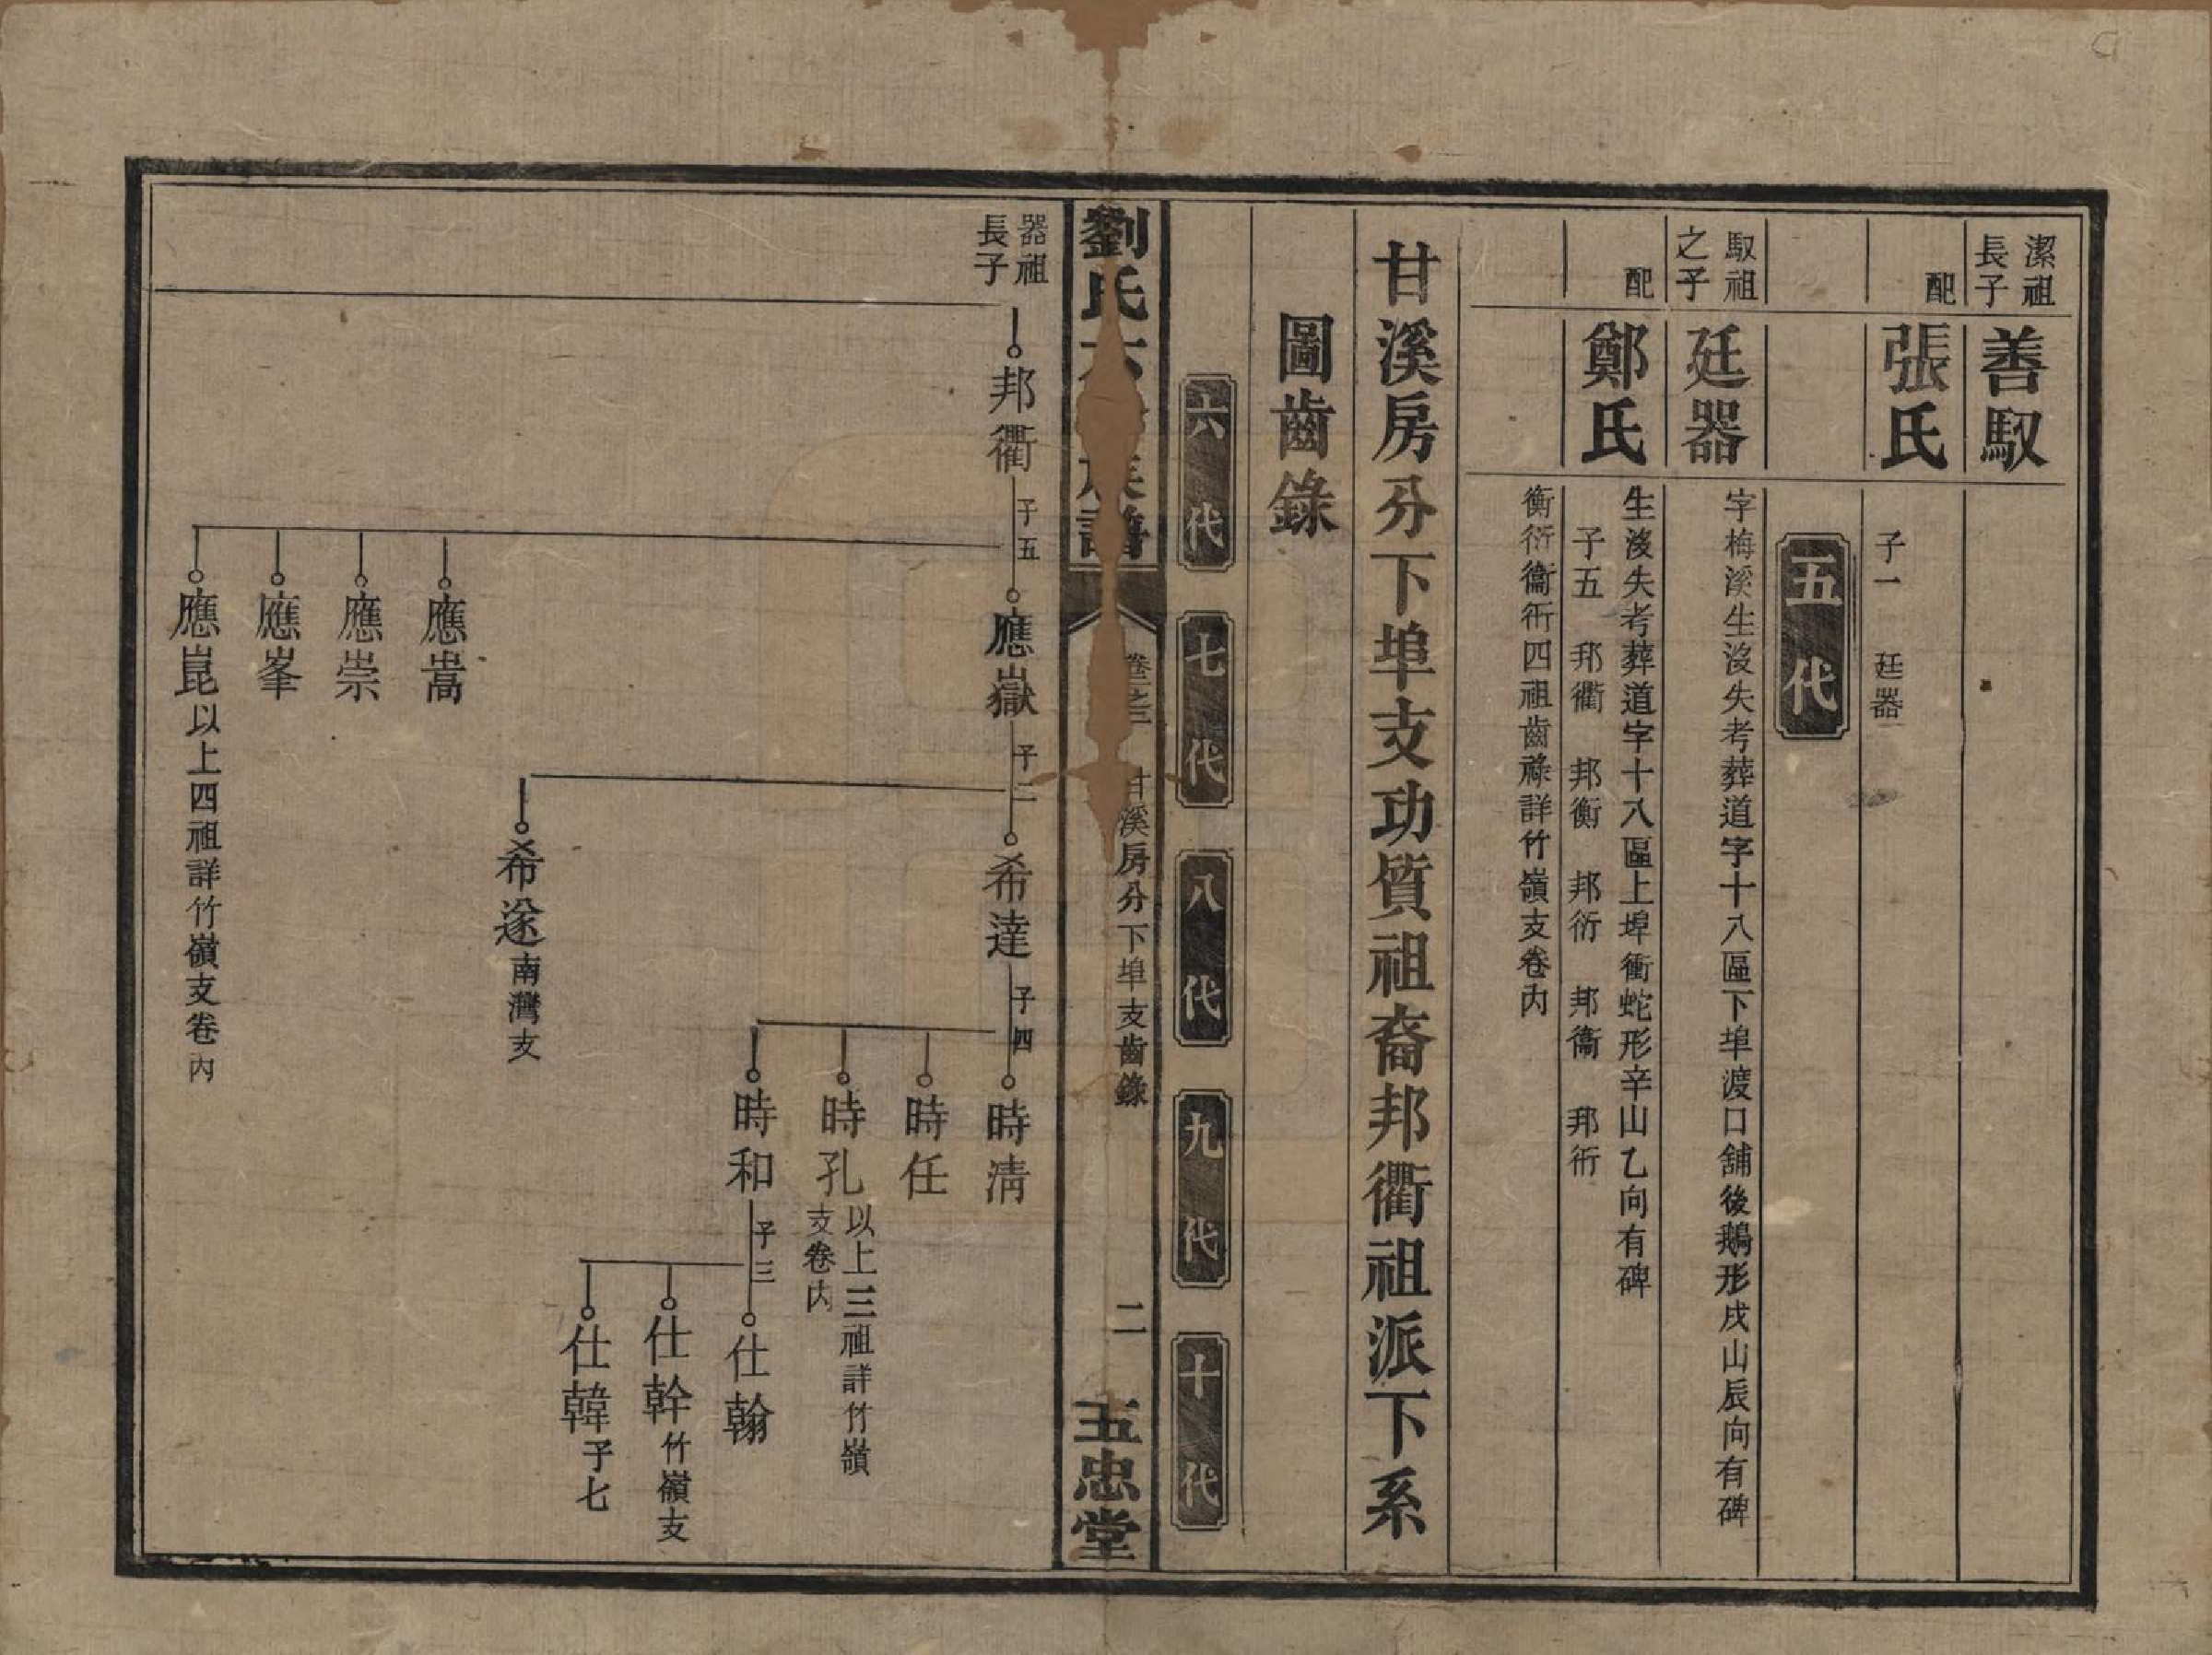 潔祖長子
善馭
配
張氏
子一　廷器
五代
馭祖之子
廷器
字梅溪生沒失考葬道字十八區下埠渡口舖後鵝形戌山辰向有碑
配
鄭氏
生沒失考葬道字十八區上埠衝蛇形辛山乙向有碑
子五　邦衢　邦衡　邦衍　邦衞　邦衎
衡衍衞衎四祖齒祿詳竹嶺支卷內
甘溪房分下埠支功質祖裔邦衢祖派下系
圖齒錄
六代　七代　八代　九代　十代
劉氏　族譜
卷之二　甘溪房分下埠支齒錄　二
五忠堂
器祖長子
邦衢　子五
應嶽　子二
希達　子四
時淸
時任
時孔　以上三祖詳竹嶺支卷內
時和　子三
仕翰
仕幹　竹嶺支
仕韓　子七
希遂　南灣支
應嵩
應崇
應峯
應崑　以上四祖詳竹嶺支卷內